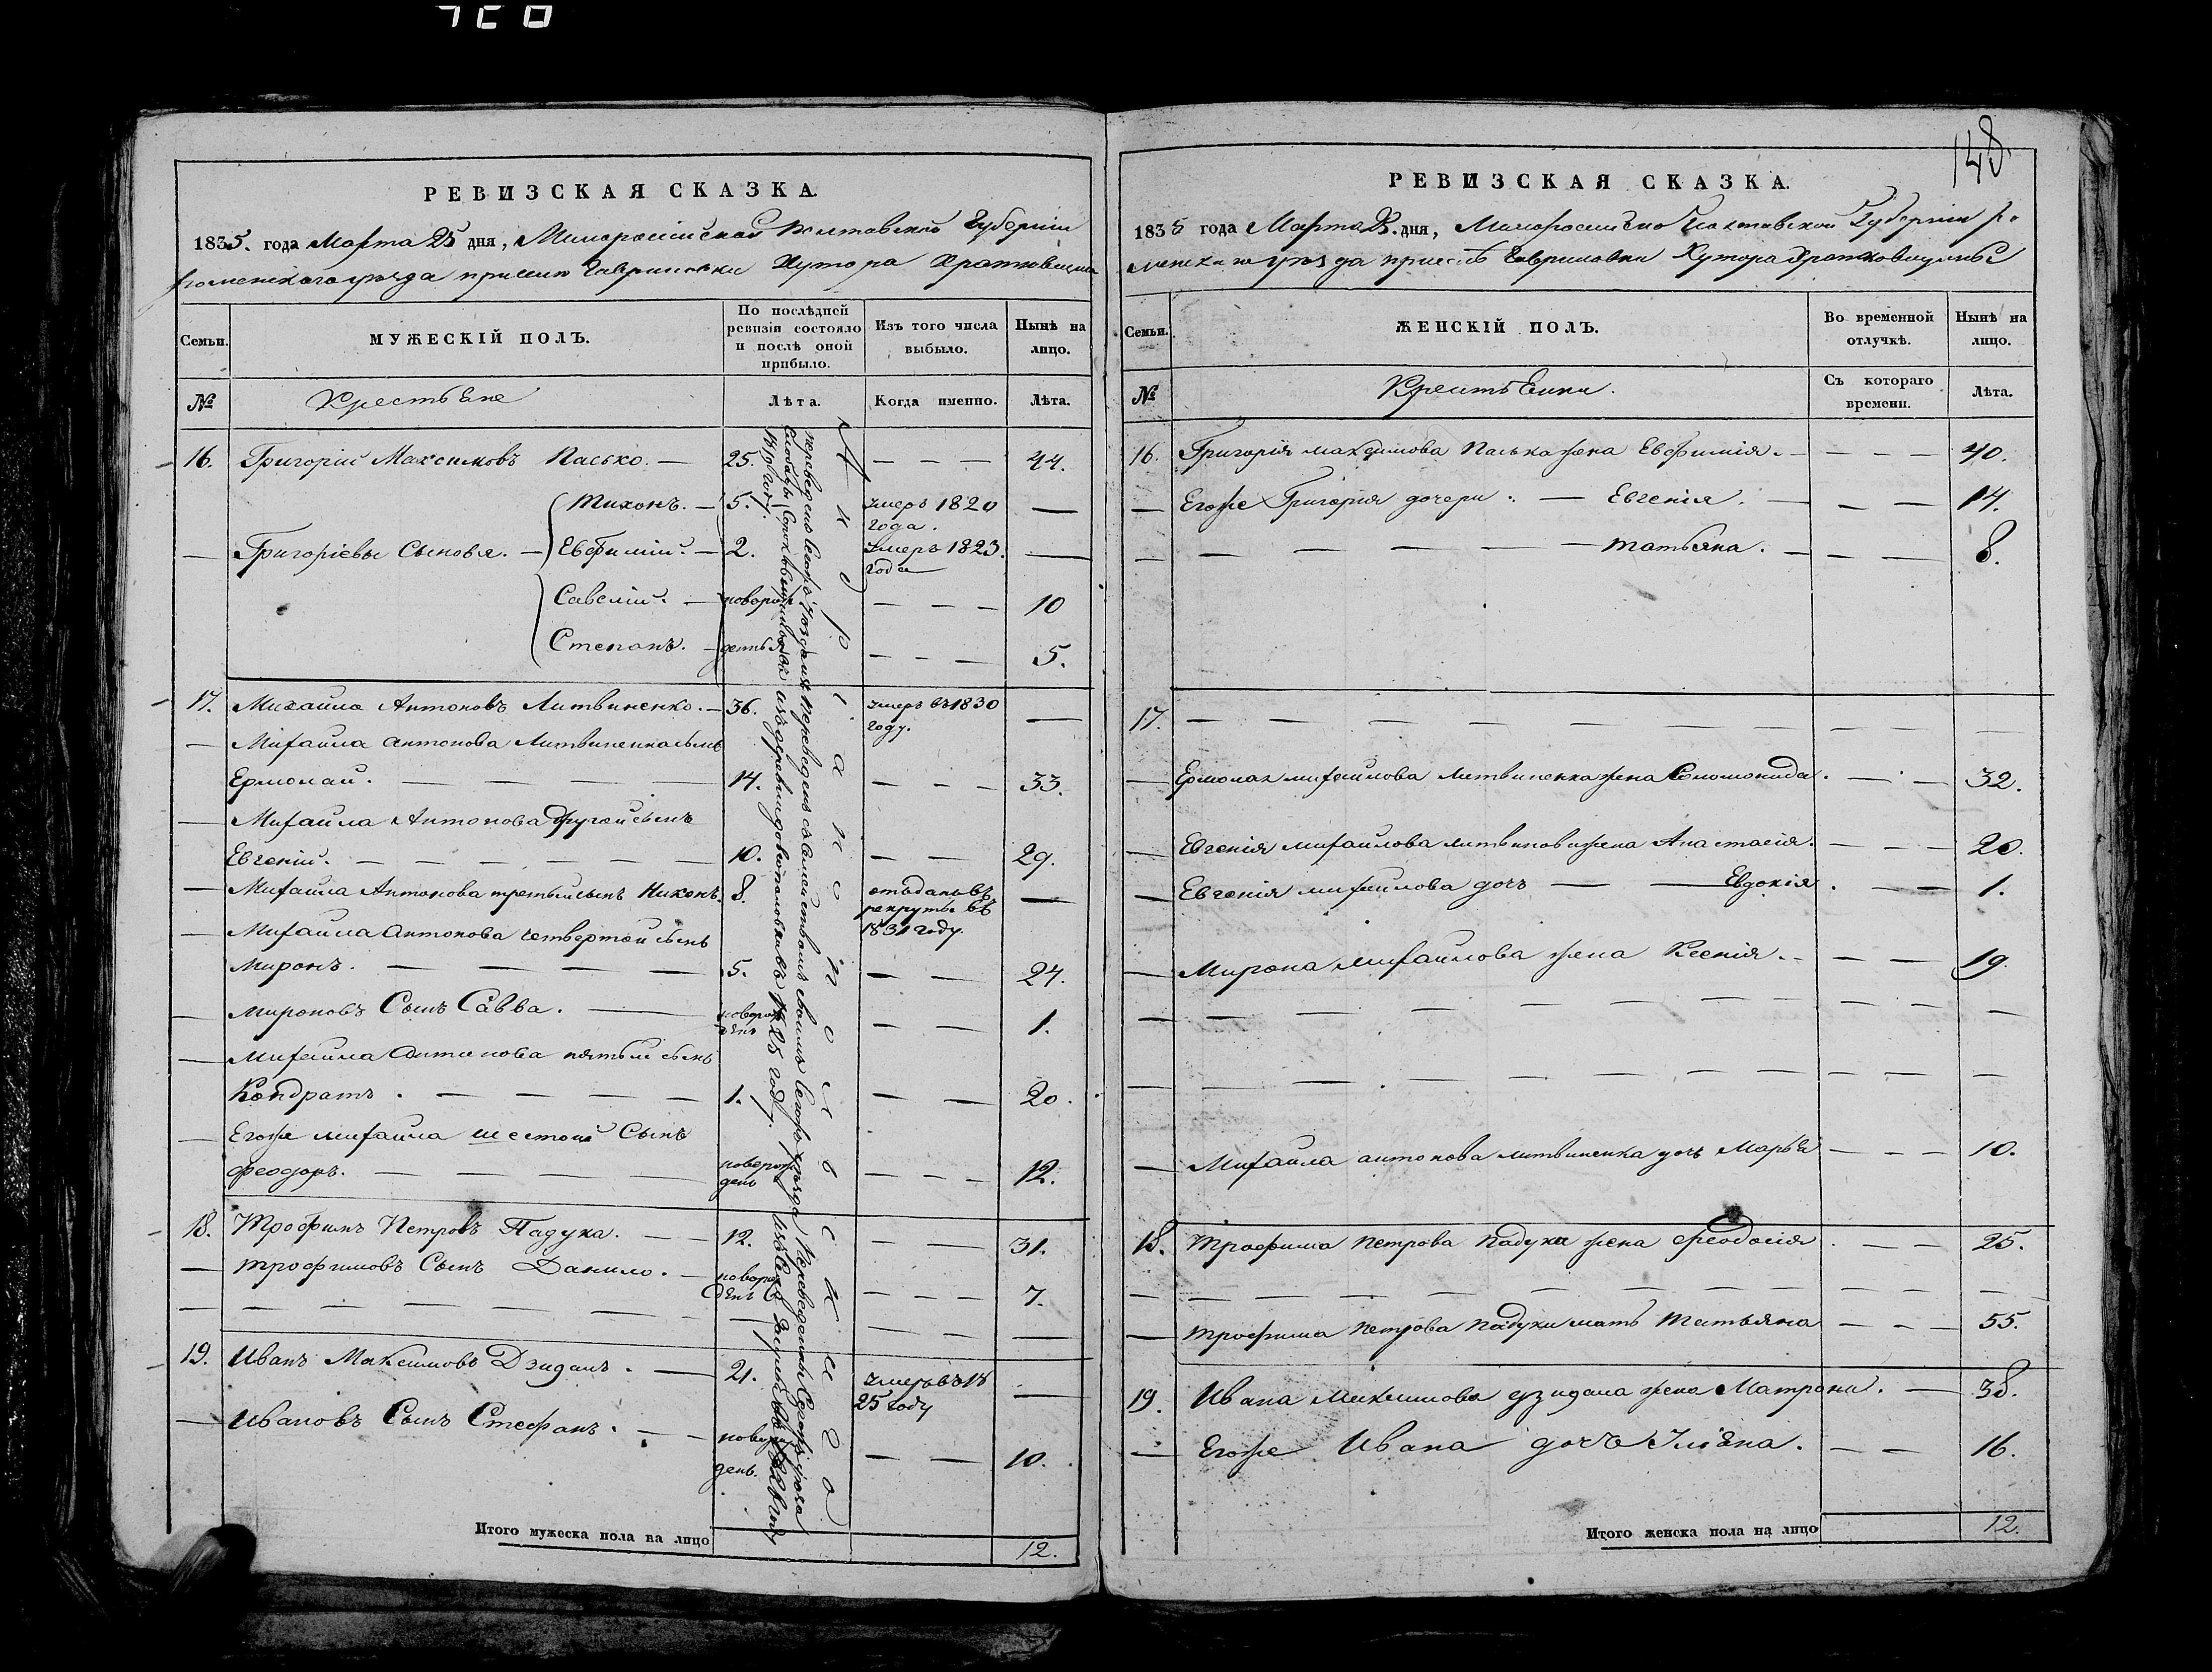 148.
РЕВИЗСКАЯ СКАЗКА.
1835. года Марта 25 дня, Малоросійской Полтавской Губерніи
Роменского уезда присело Гавриловки Хутора
Семьи.
МУЖЕСКІЙ ПОЛЪ.
По послѣдней ревизіи состояло и послѣ оной прибыло.
Изъ того числа выбыло.
Нынѣ на лицо.
№
Крестьяне
Лѣта.
Когда именно.
Лѣта.
16. Григорій Максимовъ Пасько. — 25. — — — 44.
Тихонъ. — 5. умеръ 1820 года. —
— Григоріевы Сыновья. — Евфимій. — 2. умеръ 1823. года —
Савелій. — новорож — — — 10
Степанъ. — денны — — — 5.
17. Михайла Антоновъ Литвиненко. — 36. умеръ въ 1830 году. —
— Михайла Антонова Литвиненка сынъ
Ермолай. — — — — 14. — — — 33.
— Михайла Антонова другой сынъ
Евгеній. — — — — — — 10. — — 29.
— Михайла Антонова третьий сынъ Никонъ. 8. отданъ въ рекруты въ 1831 году. —
— Михайла Антонова четвертой сынъ
Миронъ. — — — — 5. — — 24.
— Мироновъ Сынъ Савва. — новорож денъ — — 1.
— Михайла Антонова пятый сынъ
Кондратъ. — — — — 1. — — 20.
— Егоже Михайла шестой Сынъ
Феодоръ. — — — — новорож денъ — — — 12.
18. Трофимъ Петровъ Падука. — — 12. — — 31.
— Трофимовъ Сынъ Данило. — новорож денъ — — — 7.
— — — — — — — — — — — —
19. Иванъ Максимовъ Дзидаль. — 21. умеръ въ 18 25 году —
— Ивановъ Сынъ Стефанъ. — — новорож денъ. — — 10.
Итого мужеска пола на лицо 12.
РЕВИЗСКАЯ СКАЗКА.
1835 года Марта 25. дня, Малоросійско Полтавской Губерніи Ро
менского уезда приселѣ Гавриловки Хутора
Семьи.
ЖЕНСКІЙ ПОЛЪ.
Во временной отлучкѣ.
Нынѣ на лицо.
№
Крестьенки.
Съ котораго времени.
Лѣта.
16. Григорія Максимова Паська жена Евфимія. — — — — 40.
— Егоже Григорія дочери. — Евгенія. — — — — 14.
— — — — — — — Татьяна. — — — 8.
17. — — — — — — — — — — —
— Ермолая Михайлова Литвиненка жена Соломонида. — — — 32.
— Евгенія Михайлова жена Анастасія. — — — 20.
— Евгенія Михайлова дочь — — Евдокія. — — 1.
— Мирона Михайлова жена Ксенія. — — — 19.
— — — — — — — — — — —
— — — — — — — — — — —
— Михайла Антонова Литвиненка дочь Марья — — — 10.
18. Трофима Петрова Падуки жена Феодосія — — 25.
— — — — — — — — — — —
— Трофима Петрова Падуки мать Татьяна — — — 55.
19. Ивана Максимова Дзидаля жена Матрона. — 38.
— Егоже Ивана дочь Уліяна. — — 16.
Итого женска пола на лицо 12.